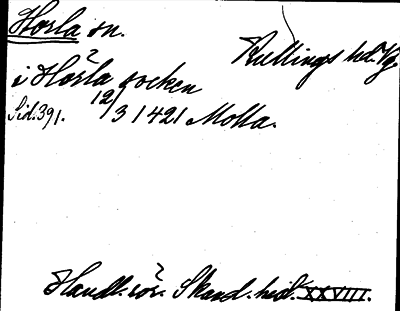 Horla sn.
Kullings hd. Vg.
i Horla socken
Sid. 391. 12/3 1421 Molla.
Handl. rör. Skand. hist. XXVIII.